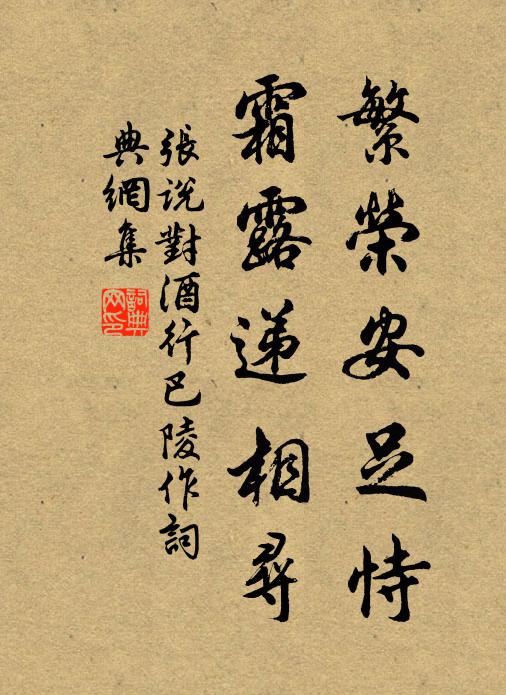 繁榮安足恃
霜露递相尋
張說對酒行巴陵作詞
典網集
詞典網印